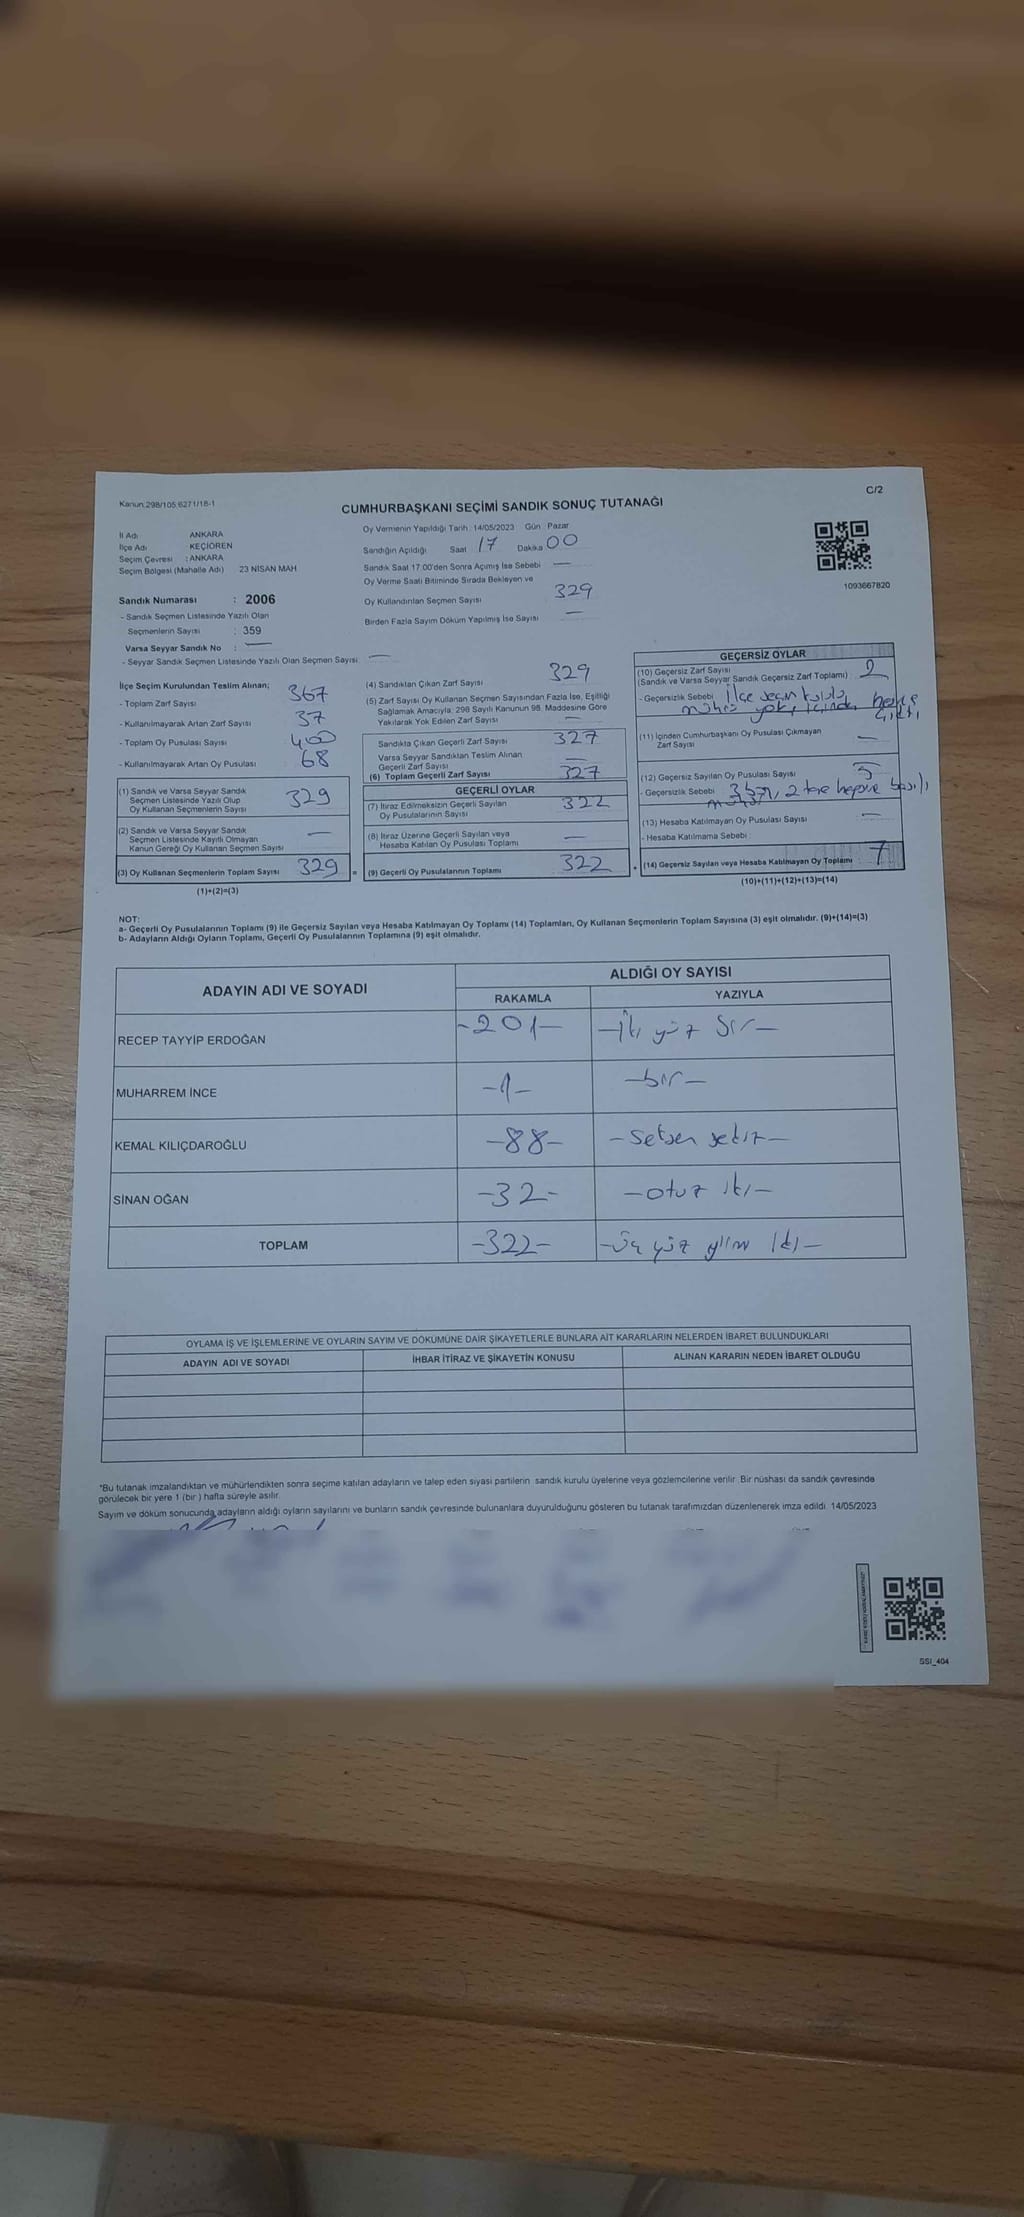 Kanun:298/105 6271/18-1
C/2
CUMHURBAŞKANI SEÇİMİ SANDIK SONUÇ TUTANAĞI
İl Adı ANKARA
İlçe Adı KEÇİÖREN
Seçim Çevresi : ANKARA
Seçim Bölgesi (Mahalle Adı) 23 NİSAN MAH
Sandık Numarası : 2006
- Sandık Seçmen Listesinde Yazılı Olan
Seçmenlerin Sayısı : 359
Varsa Seyyar Sandık No : —
- Seyyar Sandık Seçmen Listesinde Yazılı Olan Seçmen Sayısı —
Oy Vermenin Yapıldığı Tarih : 14/05/2023 Gün : Pazar
Sandığın Açıldığı Saat 17 Dakika 00
Sandık Saat 17:00'den Sonra Açımış İse Sebebi —
Oy Verme Saati Bitiminde Sırada Bekleyen ve
Oy Kullandırılan Seçmen Sayısı 329
Birden Fazla Sayım Döküm Yapılmış İse Sayısı —
1093667820
İlçe Seçim Kurulundan Teslim Alınan;
- Toplam Zarf Sayısı 367
- Kullanılmayarak Artan Zarf Sayısı 37
- Toplam Oy Pusulası Sayısı 400
- Kullanılmayarak Artan Oy Pusulası 68
(1) Sandık ve Varsa Seyyar Sandık
Seçmen Listesinde Yazılı Olup
Oy Kullanan Seçmenlerin Sayısı 329
(2) Sandık ve Varsa Seyyar Sandık
Seçmen Listesinde Kayıtlı Olmayan
Kanun Gereği Oy Kullanan Seçmen Sayısı —
(3) Oy Kullanan Seçmenlerin Toplam Sayısı 329 =
(1)+(2)=(3)
(4) Sandıktan Çıkan Zarf Sayısı 329
(5) Zarf Sayısı Oy Kullanan Seçmen Sayısından Fazla İse, Eşitliği
Sağlamak Amacıyla, 298 Sayılı Kanunun 98. Maddesine Göre
Yakılarak Yok Edilen Zarf Sayısı —
Sandıkta Çıkan Geçerli Zarf Sayısı 327
Varsa Seyyar Sandıktan Teslim Alınan
Geçerli Zarf Sayısı —
(6) Toplam Geçerli Zarf Sayısı 327
GEÇERLİ OYLAR
(7) İtiraz Edilmeksizin Geçerli Sayılan
Oy Pusulalarının Sayısı 322
(8) İtiraz Üzerine Geçerli Sayılan veya
Hesaba Katılan Oy Pusulası Toplamı —
(9) Geçerli Oy Pusulalarının Toplamı 322 +
GEÇERSİZ OYLAR
(10) Geçersiz Zarf Sayısı
(Sandık ve Varsa Seyyar Sandık Geçersiz Zarf Toplamı) 2
- Geçersizlik Sebebi İlçe seçim kurulu
mührü yok, içinden
çıktı
(11) İçinden Cumhurbaşkanı Oy Pusulası Çıkmayan
Zarf Sayısı —
(12) Geçersiz Sayılan Oy Pusulası Sayısı 5
- Geçersizlik Sebebi 2 tane basılı
(13) Hesaba Katılmayan Oy Pusulası Sayısı —
- Hesaba Katılmama Sebebi :
(14) Geçersiz Sayılan veya Hesaba Katılmayan Oy Toplamı : 7
(10)+(11)+(12)+(13)=(14)
NOT:
a- Geçerli Oy Pusulalarının Toplamı (9) ile Geçersiz Sayılan veya Hesaba Katılmayan Oy Toplamı (14) Toplamları, Oy Kullanan Seçmenlerin Toplam Sayısına (3) eşit olmalıdır. (9)+(14)=(3)
b- Adayların Aldığı Oyların Toplamı, Geçerli Oy Pusulalarının Toplamına (9) eşit olmalıdır.
ADAYIN ADI VE SOYADI ALDIĞI OY SAYISI
RAKAMLA YAZIYLA
RECEP TAYYİP ERDOĞAN -201- -iki yüz bir-
MUHARREM İNCE -1- -bir-
KEMAL KILIÇDAROĞLU -88- -seksen sekiz-
SİNAN OĞAN -32- -otuz iki-
TOPLAM -322- -üç yüz yirmi iki-
OYLAMA İŞ VE İŞLEMLERİNE VE OYLARIN SAYIM VE DÖKÜMÜNE DAİR ŞİKAYETLERLE BUNLARA AİT KARARLARIN NELERDEN İBARET BULUNDUKLARI
ADAYIN ADI VE SOYADI İHBAR İTİRAZ VE ŞİKAYETİN KONUSU ALINAN KARARIN NEDEN İBARET OLDUĞU
*Bu tutanak imzalandıktan ve mühürlendikten sonra seçime katılan adayların ve talep eden siyasi partilerin sandık kurulu üyelerine veya gözlemcilerine verilir. Bir nüshası da sandık çevresinde
görülecek bir yere 1 (bir) hafta süreyle asılır.
Sayım ve döküm sonucunda adayların aldığı oyların sayılarını ve bunların sandık çevresinde bulunanlara duyurulduğunu gösteren bu tutanak tarafımızdan düzenlenerek imza edildi. 14/05/2023
SSI_404